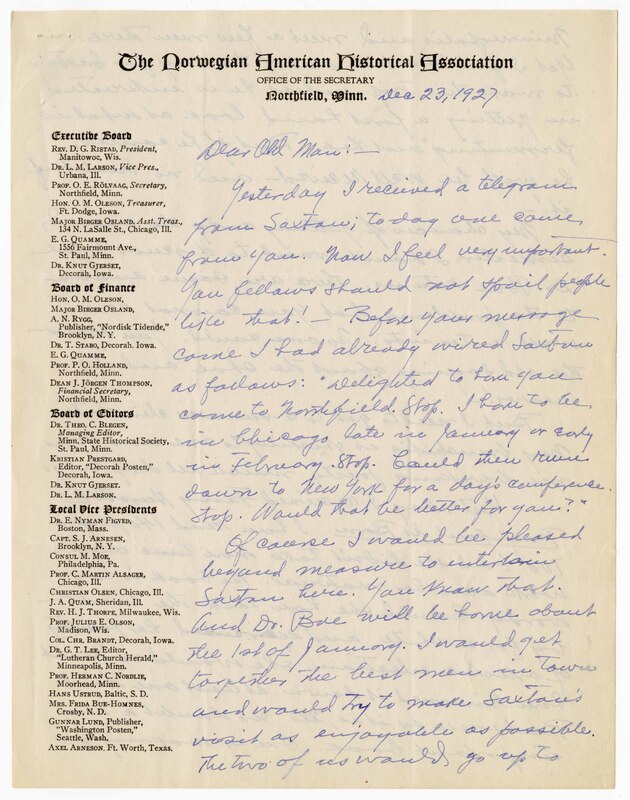 The Norwegian American Historical Association
OFFICE OF THE SECRETARY
Northfield, Minn. Dec 23, 1927
Executive Board
REV. D. G. RISTAD, President,
Manitowoc, Wis.
DR. L. M. LARSON, Vice Pres.,
Urbana, Ill.
PROF. O. E. RÖLVAAG, Secretary,
Northfield, Minn.
HON. O. M. OLESON, Treasurer,
Ft. Dodge, Iowa.
MAJOR BIRGER OSLAND, Asst. Treas.,
134 N. LaSalle St., Chicago, Ill.
E. G. QUAMME,
1556 Fairmount Ave.,
St. Paul, Minn.
DR. KNUT GJERSET,
Decorah, Iowa.
Board of Finance
HON. O. M. OLESON,
MAJOR BIRGER OSLAND,
A. N. RYGG,
Publisher, "Nordisk Tidende,"
Brooklyn, N. Y.
DR. T. STABO, Decorah, Iowa.
E. G. QUAMME,
PROF. P. O. HOLLAND,
Northfield, Minn.
DEAN J. JÖRGEN THOMPSON,
Financial Secretary,
Northfield, Minn.
Board of Editors
DR. THEO. C. BLEGEN,
Managing Editor,
Minn. State Historical Society,
St. Paul, Minn.
KRISTIAN PRESTGARD,
Editor, "Decorah Posten,"
Decorah, Iowa.
DR. KNUT GJERSET.
DR. L. M. LARSON.
Local Vice Presidents
DR. E. NYMAN FIGVED,
Boston, Mass.
CAPT. S. J. ARNESEN,
Brooklyn, N. Y.
CONSUL M. MOE,
Philadelphia, Pa.
PROF. C. MARTIN ALSAGER,
Chicago, Ill.
CHRISTIAN OLSEN, Chicago, Ill.
J. A. QUAM, Sheridan, Ill.
REV. H. J. THORPE, Milwaukee, Wis.
PROF. JULIUS E. OLSON,
Madison, Wis.
COL. CHR. BRANDT, Decorah, Iowa.
DR. G. T. LEE, Editor,
"Lutheran Church Herald,"
Minneapolis, Minn.
PROF. HERMAN C. NORDLIE,
Moorhead, Minn.
HANS USTRUD, Baltic, S. D.
MRS. FRIDA BUE-HOMNES,
Crosby, N. D.
GUNNAR LUND, Publisher,
"Washington Posten,"
Seattle, Wash.
AXEL ARNESON. Ft. Worth, Texas.
Dear Old Man:—
Yesterday I received a telegram
from Saxton; to day one came
from you. Now I feel very important.
You fellows should not spoil people
like that! — Before your message
came I had already wired Saxton
as follows: "Delighted to have you
come to Northfield. Stop. I have to be
in Chicago late in January or early
in February. Stop. Could then run
down to New York for a day's conference.
Stop. Would that be better for you?"
Of course I would be pleased
beyond measure to entertain
Saxton here. You know that.
And Dr. Boe will be home about
the 1st of January. I would get
together the best men in town
and would try to make Saxton's
visit as enjoyable as possible.
The two of us would go up to